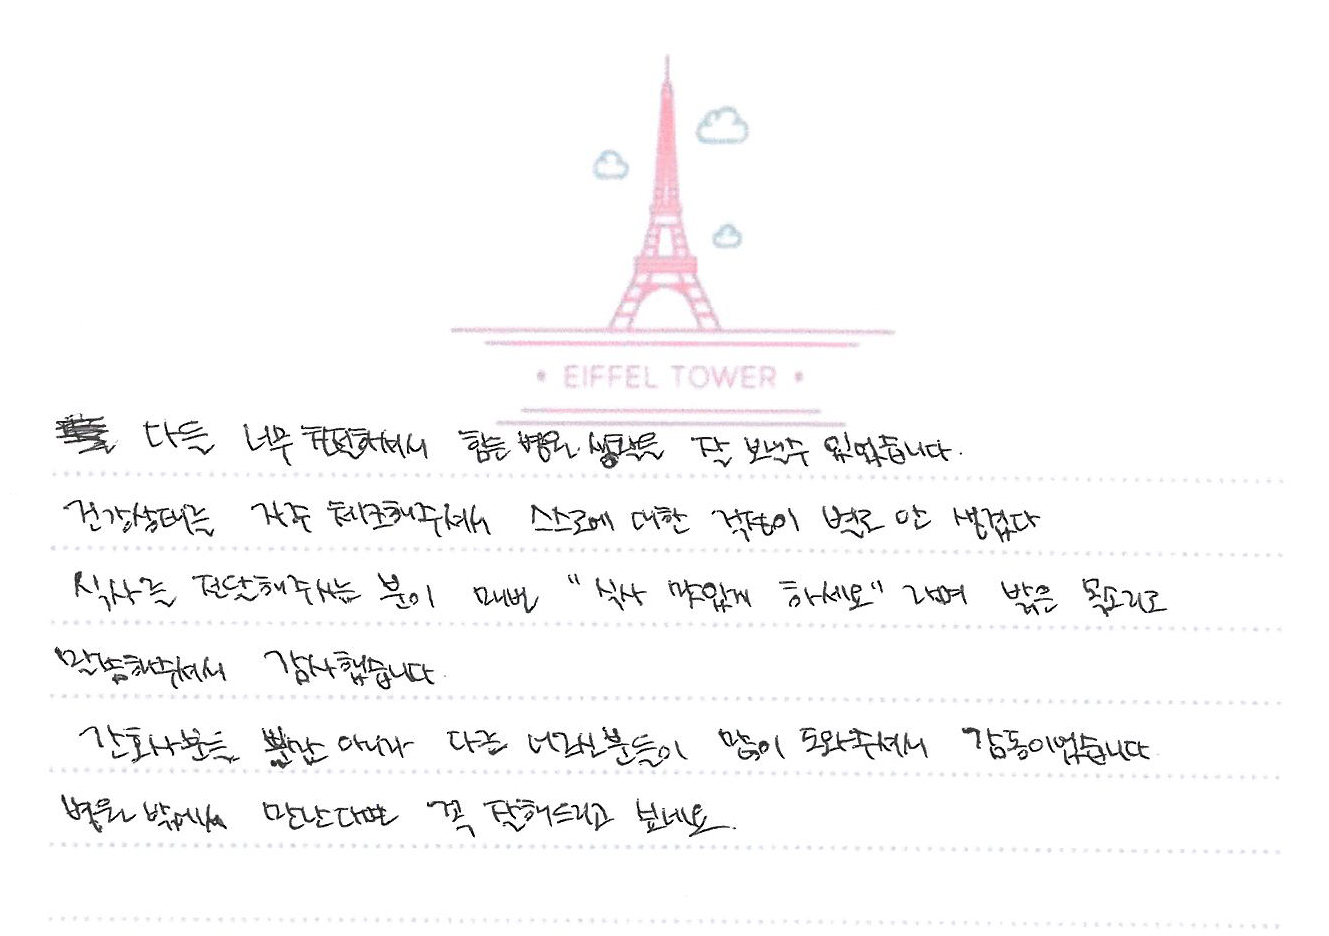 EIFFEL TOWER
다들 너무 친절하셔서 힘든 병원 생활을 잘 보낼수 있었습니다.
건강상태를 자주 체크해주셔서 스스로에 대한 걱정이 별로 안 생겼다
식사를 전달해주시는 분이 매번 "식사 맛있게 하세요" 라며 밝은 목소리로
말씀해주셔서 감사했습니다.
간호사분들 뿐만 아니라 다른 여러신분들이 많이 도와주셔서 감동이었습니다
병원 밖에서 만난다면 꼭 잘해드리고 싶네요.